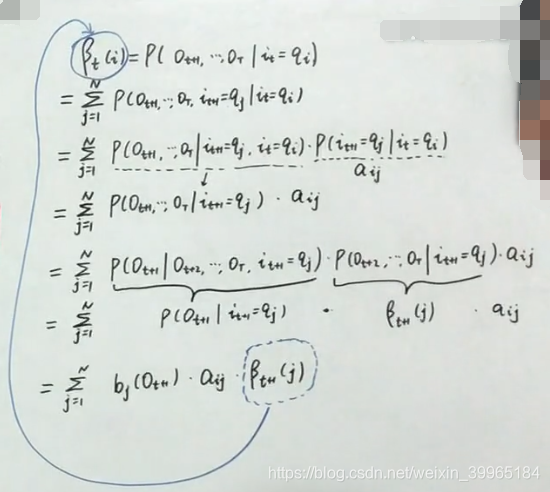 β_t(i) = P(o_{t+1}, ⋯, o_T | i_t = q_i)
= Σ_{j=1}^{N} P(o_{t+1}, ⋯, o_T, i_{t+1} = q_j | i_t = q_i)
= Σ_{j=1}^{N} P(o_{t+1}, ⋯, o_T | i_{t+1} = q_j, i_t = q_i) · P(i_{t+1} = q_j | i_t = q_i)
a_{ij}
= Σ_{j=1}^{N} P(o_{t+1}, ⋯, o_T | i_{t+1} = q_j) · a_{ij}
= Σ_{j=1}^{N} P(o_{t+1} | o_{t+2}, ⋯, o_T, i_{t+1} = q_j) · P(o_{t+2}, ⋯, o_T | i_{t+1} = q_j) · a_{ij}
= Σ_{j=1}^{N} P(o_{t+1} | i_{t+1} = q_j) · β_{t+1}(j) · a_{ij}
= Σ_{j=1}^{N} b_j(o_{t+1}) · a_{ij} · β_{t+1}(j)
https://blog.csdn.net/weixin_39965184